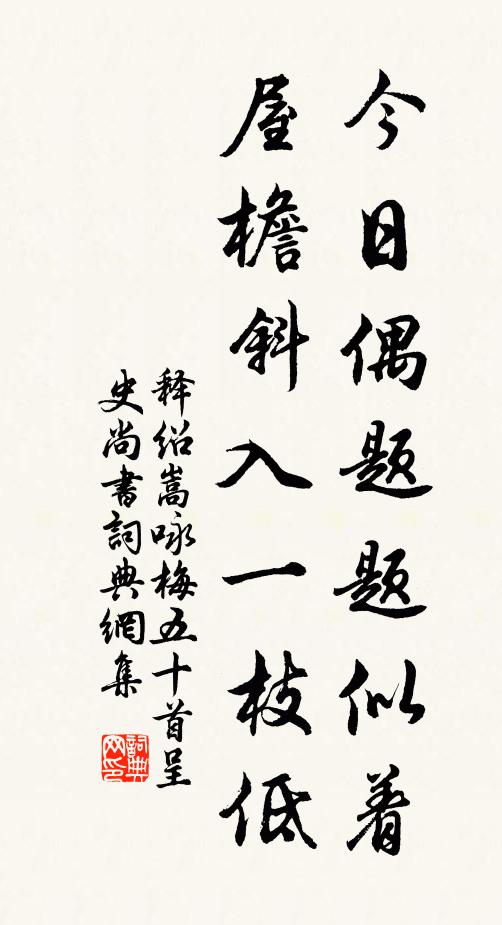 今日偶题题似着
屋檐斜入一枝低
释绍嵩咏梅五十首呈
史尚書詞典網集
詞典
网印